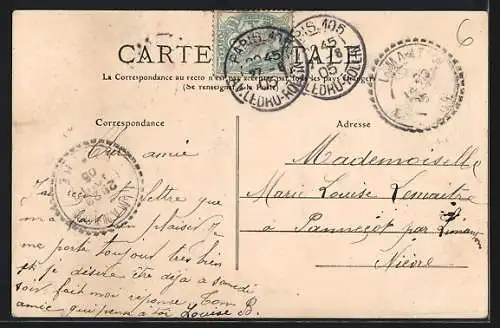 6
CARTE POSTALE
La Correspondance au recto n'est pas acceptée par tous les pays étrangers
(Se renseigner à la Poste)
PARIS 105
AV. LEDRU-ROLLIN
PARIS 105
AV. LEDRU-ROLLIN
Correspondance
Adresse
amie
J'ai reçu lettre que
m'a plaisir
me porte toujours très bien
et je désire être déjà a samedi
soir fait moi réponse Ton
amie qui pense a toi Louise B.
Mademoiselle
Marie Louise Lemaitre
à Panneçot par Limanton
Nièvre